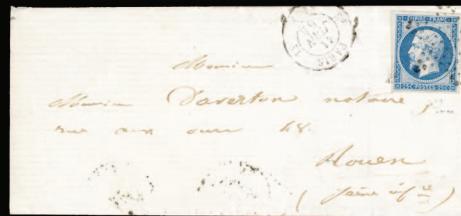 EMPIRE FRANC
PARIS
20 C POSTES 20 C
Monsieur
Monsieur Daverton notaire
rue aux ours 48
Rouen
(Seine infre)